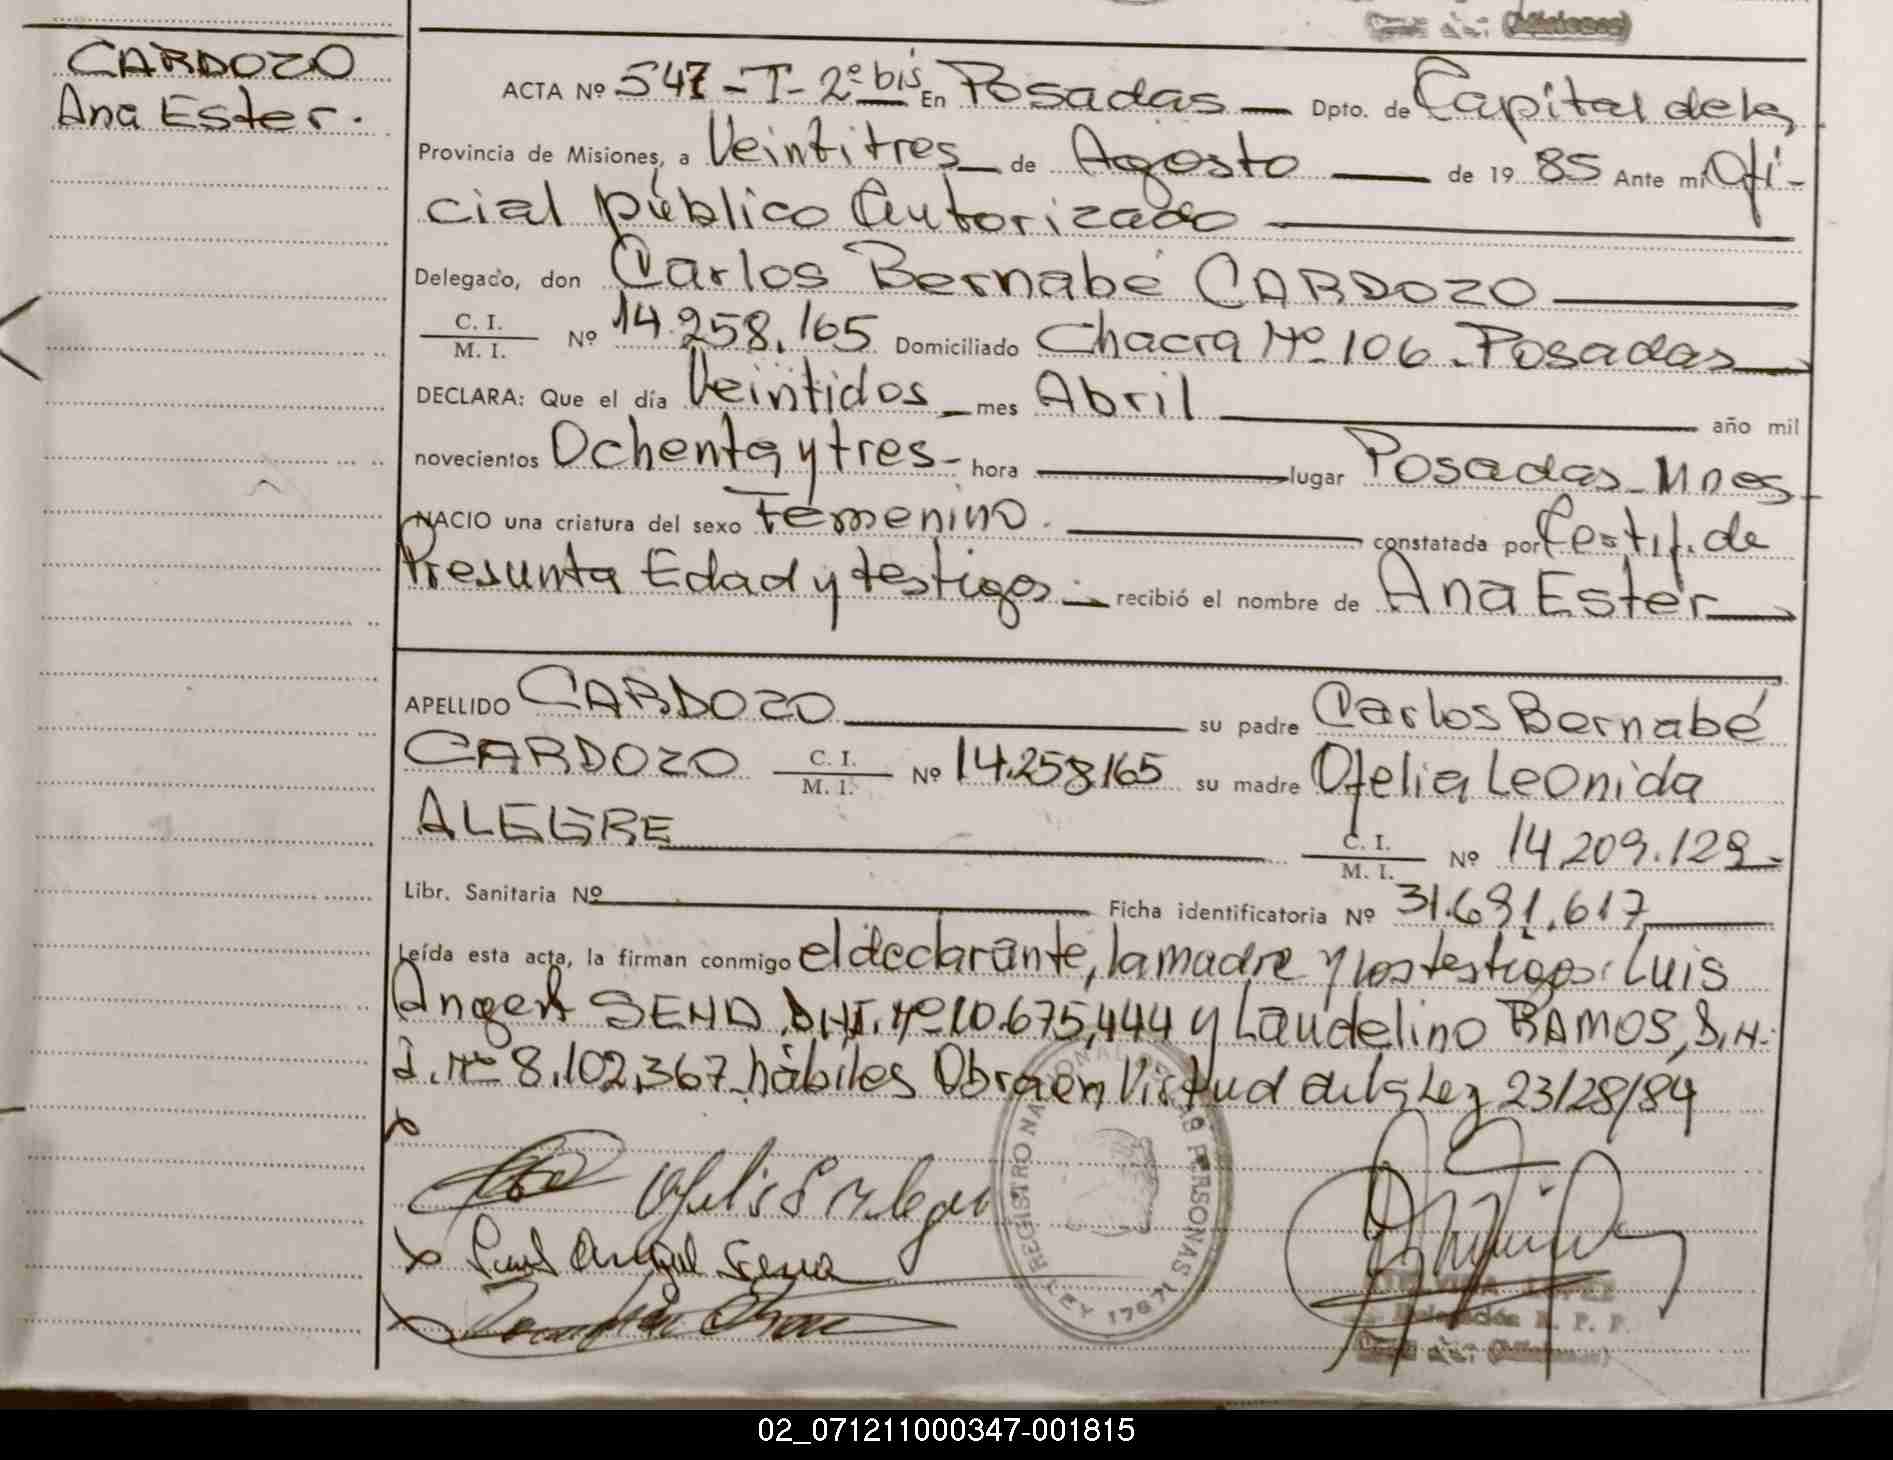 CARDOZO
Ana Ester.
ACTA Nº 547-T-2º bis En Posadas Dpto. de Capital de la
Provincia de Misiones, a Veintitres de Agosto de 19 85 Ante mi Ofi-
cial público Autorizado
Delegado, don Carlos Bernabé CARDOZO
C. I.
M. I. Nº 14.258.165 Domiciliado Chacra Nº 106 - Posadas
DECLARA: Que el día Veintidos mes Abril año mil
novecientos Ochenta y tres - hora lugar Posadas - Mnes
NACIO una criatura del sexo Femenino. constatada por Certif. de
Presunta Edad y testigos recibió el nombre de Ana Ester
APELLIDO CARDOZO su padre Carlos Bernabé
CARDOZO C. I. M. I. Nº 14.258.165 su madre Ofelia Leonida
ALEGRE
C. I.
M. I. Nº 14.209.129
Libr. Sanitaria Nº Ficha identificatoria Nº 31.691.617
Leída esta acta, la firman conmigo el declarante, la madre y los testigos: Luis
Angel SENA D.N.I. Nº 10.675.444 y Laudelino RAMOS, D.N.
I. Nº 8.102.367 hàbiles Obra en Virtud de la Ley 23128/84
REGISTRO NACIONAL DE LAS PERSONAS
LEY 17671
Luis Angel Sena
Delegación R. P. P.
(Misiones)
02_071211000347-001815